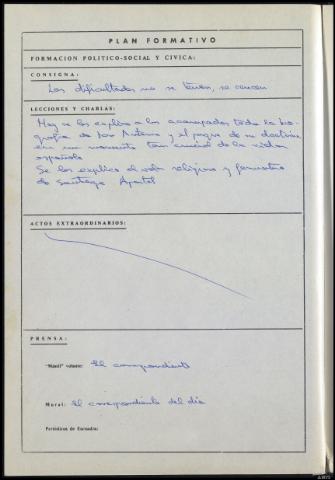 PLAN FORMATIVO
FORMACION POLITICO-SOCIAL Y CIVICA:
CONSIGNA:
Las dificultades no se temen, se vencen
LECCIONES Y CHARLAS:
Hoy se les explica a los acampados toda la bio-
grafía de José Antonio y el porqué de su doctrina
en un momento tan crucial de la vida
española
Se les explica el valor religioso y formativo
de Santiago Apostol
ACTOS EXTRAORDINARIOS:
PRENSA:
"Mástil" volante: El correspondiente
Mural: El correspondiente del dia
Periódicos de Escuadra: